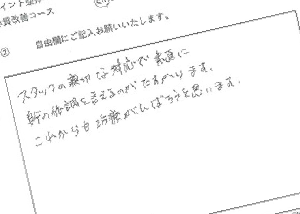 イント型
質改善コース
③ 自由欄にご記入お願いいたします。
スタッフの親切な対応で素直に
軒の体調を言えるのがたすかります。
これからも治療がんばろうと思います。